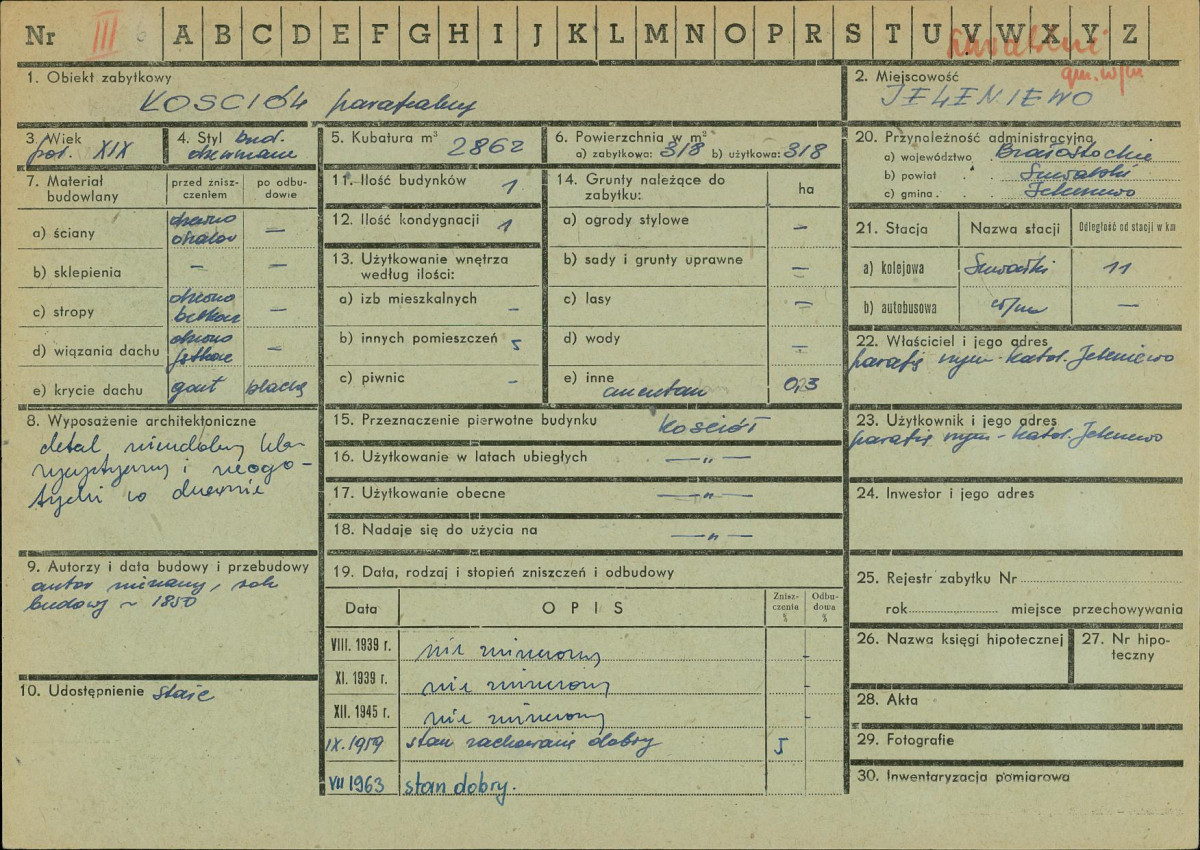 Nr III 6 A B C D E F G H I J K L M N O P R S T U V W X Y Z
Suwalski
gm. w/m
1. Obiekt zabytkowy
KOSCIÓŁ parafialny
2. Miejscowość
JELENIEWO
3. Wiek
poł. XIX
4. Styl bud.
drewniane
5. Kubatura m³ 2862
6. Powierzchnia w m²
a) zabytkowa: 318 b) użytkowa: 318
7. Materiał budowlany
przed zniszczeniem
po odbudowie
a) ściany drewno –
b) sklepienia – –
c) stropy drewno belkowe –
d) wiązania dachu drewno –
e) krycie dachu gont blachą
8. Wyposażenie architektoniczne
detal
i neogo-
tycki w drewnie
9. Autorzy i data budowy i przebudowy
autor nieznany, rok
budowy ~ 1850
10. Udostępnienie stałe
11. Ilość budynków 1
12. Ilość kondygnacji 1
13. Użytkowanie wnętrza
według ilości:
a) izb mieszkalnych –
b) innych pomieszczeń 5
c) piwnic –
14. Grunty należące do
zabytku: ha
a) ogrody stylowe –
b) sady i grunty uprawne –
c) lasy –
d) wody –
e) inne
cmentarz 0,3
15. Przeznaczenie pierwotne budynku Kościół
16. Użytkowanie w latach ubiegłych —„—
17. Użytkowanie obecne —„—
18. Nadaje się do użycia na —„—
19. Data, rodzaj i stopień zniszczeń i odbudowy
Data OPIS Zniszczenia % Odbudowa %
VIII. 1939 r. nie zniszczony –
XI. 1939 r. nie zniszczony –
XII. 1945 r. nie zniszczony –
IX. 1959 stan zachowania dobry 5
VII 1963 stan dobry.
20. Przynależność administracyjna
a) województwo Białostockie
b) powiat Suwalski
c) gmina Jeleniewo
21. Stacja Nazwa stacji Odległość od stacji w km
a) kolejowa Suwałki 11
b) autobusowa w/m –
22. Właściciel i jego adres
parafia rzym-katol. Jeleniewo
23. Użytkownik i jego adres
parafia rzym-katol. Jeleniewo
24. Inwestor i jego adres
25. Rejestr zabytku Nr
rok miejsce przechowywania
26. Nazwa księgi hipotecznej
27. Nr hipoteczny
28. Akta
29. Fotografie
30. Inwentaryzacja pomiarowa